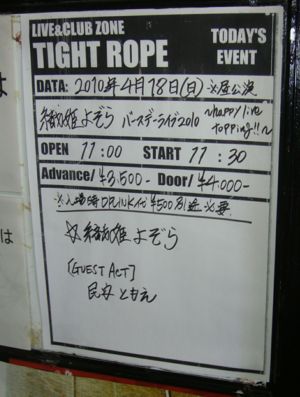 LIVE&CLUB ZONE
TIGHT ROPE
TODAY'S
EVENT
DATA: 2010年4月18日(日) ※昼公演
織姫よぞら バースデーライブ2010 ~happy live topping!!~
OPEN 11:00 START 11:30
Advance/ ¥3,500- Door/ ¥4,000-
※入場時DRINK代¥500別途必要
☆織姫よぞら
[GUEST ACT]
民安ともえ
は